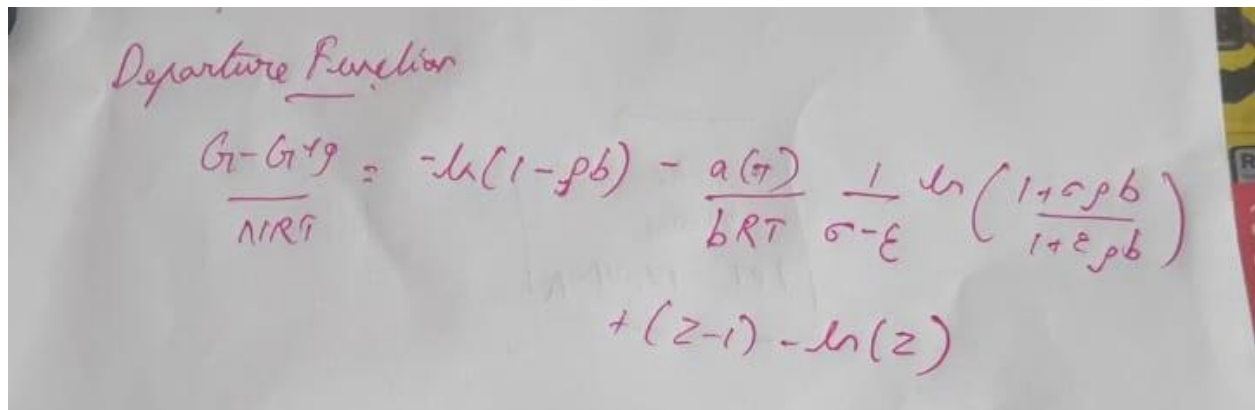 Departure Function
G-G^ig / NRT = -ln(1-ρb) - a(T)/bRT 1/σ-ε ln(1+σρb / 1+ερb)
+(Z-1) - ln(Z)